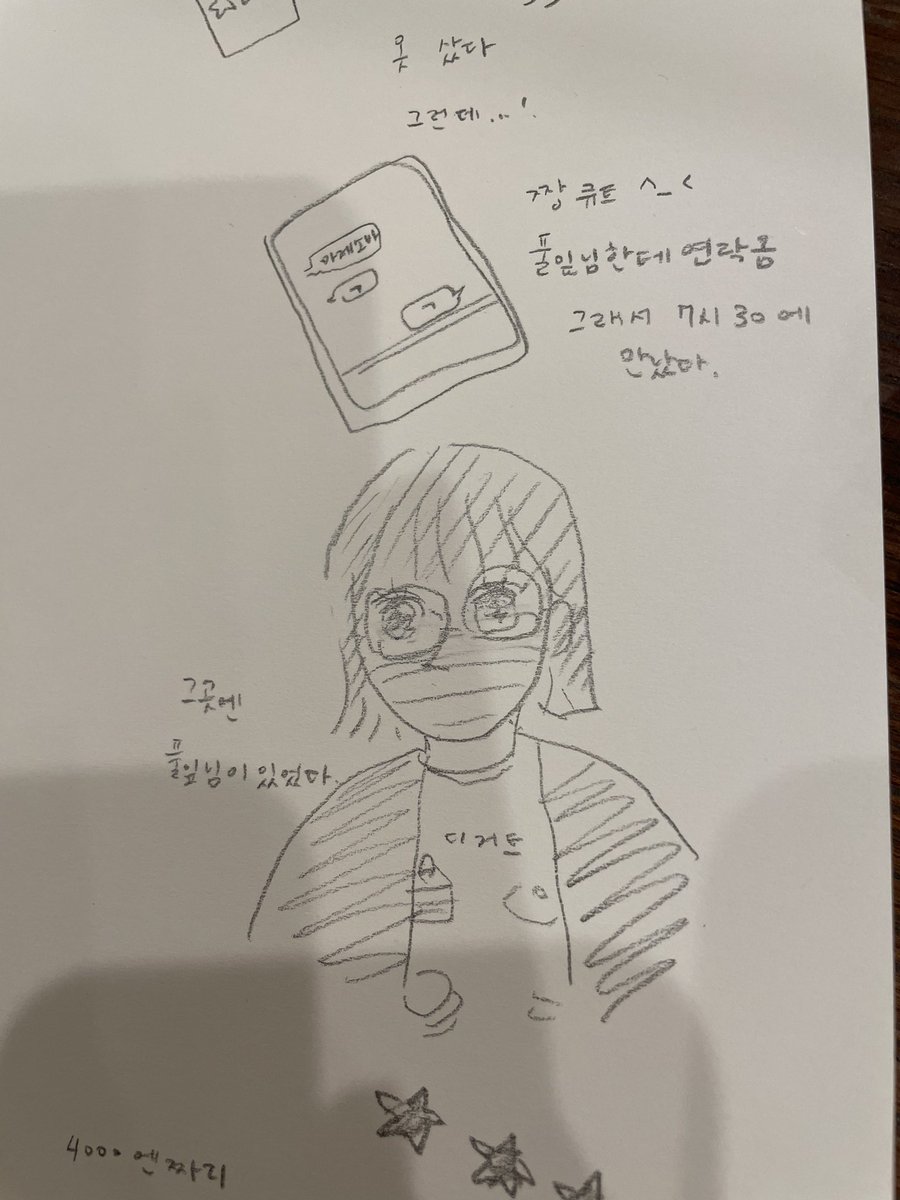 옷 샀다
그런데...!
짱 큐트 ^_<
풀잎님한테 연락옴
그래서 7시 30에
만났다.
ㄱ
ㄱ
그곳엔
풀잎님이 있었다.
디저트
4000엔짜리